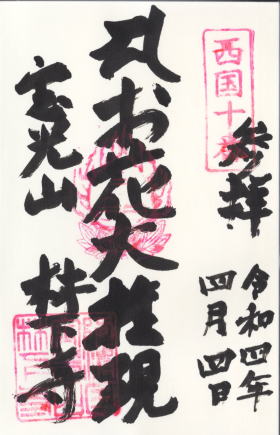 西国十
参拝
令和四年
四月四日
お花大権現
宝光山
林下寺